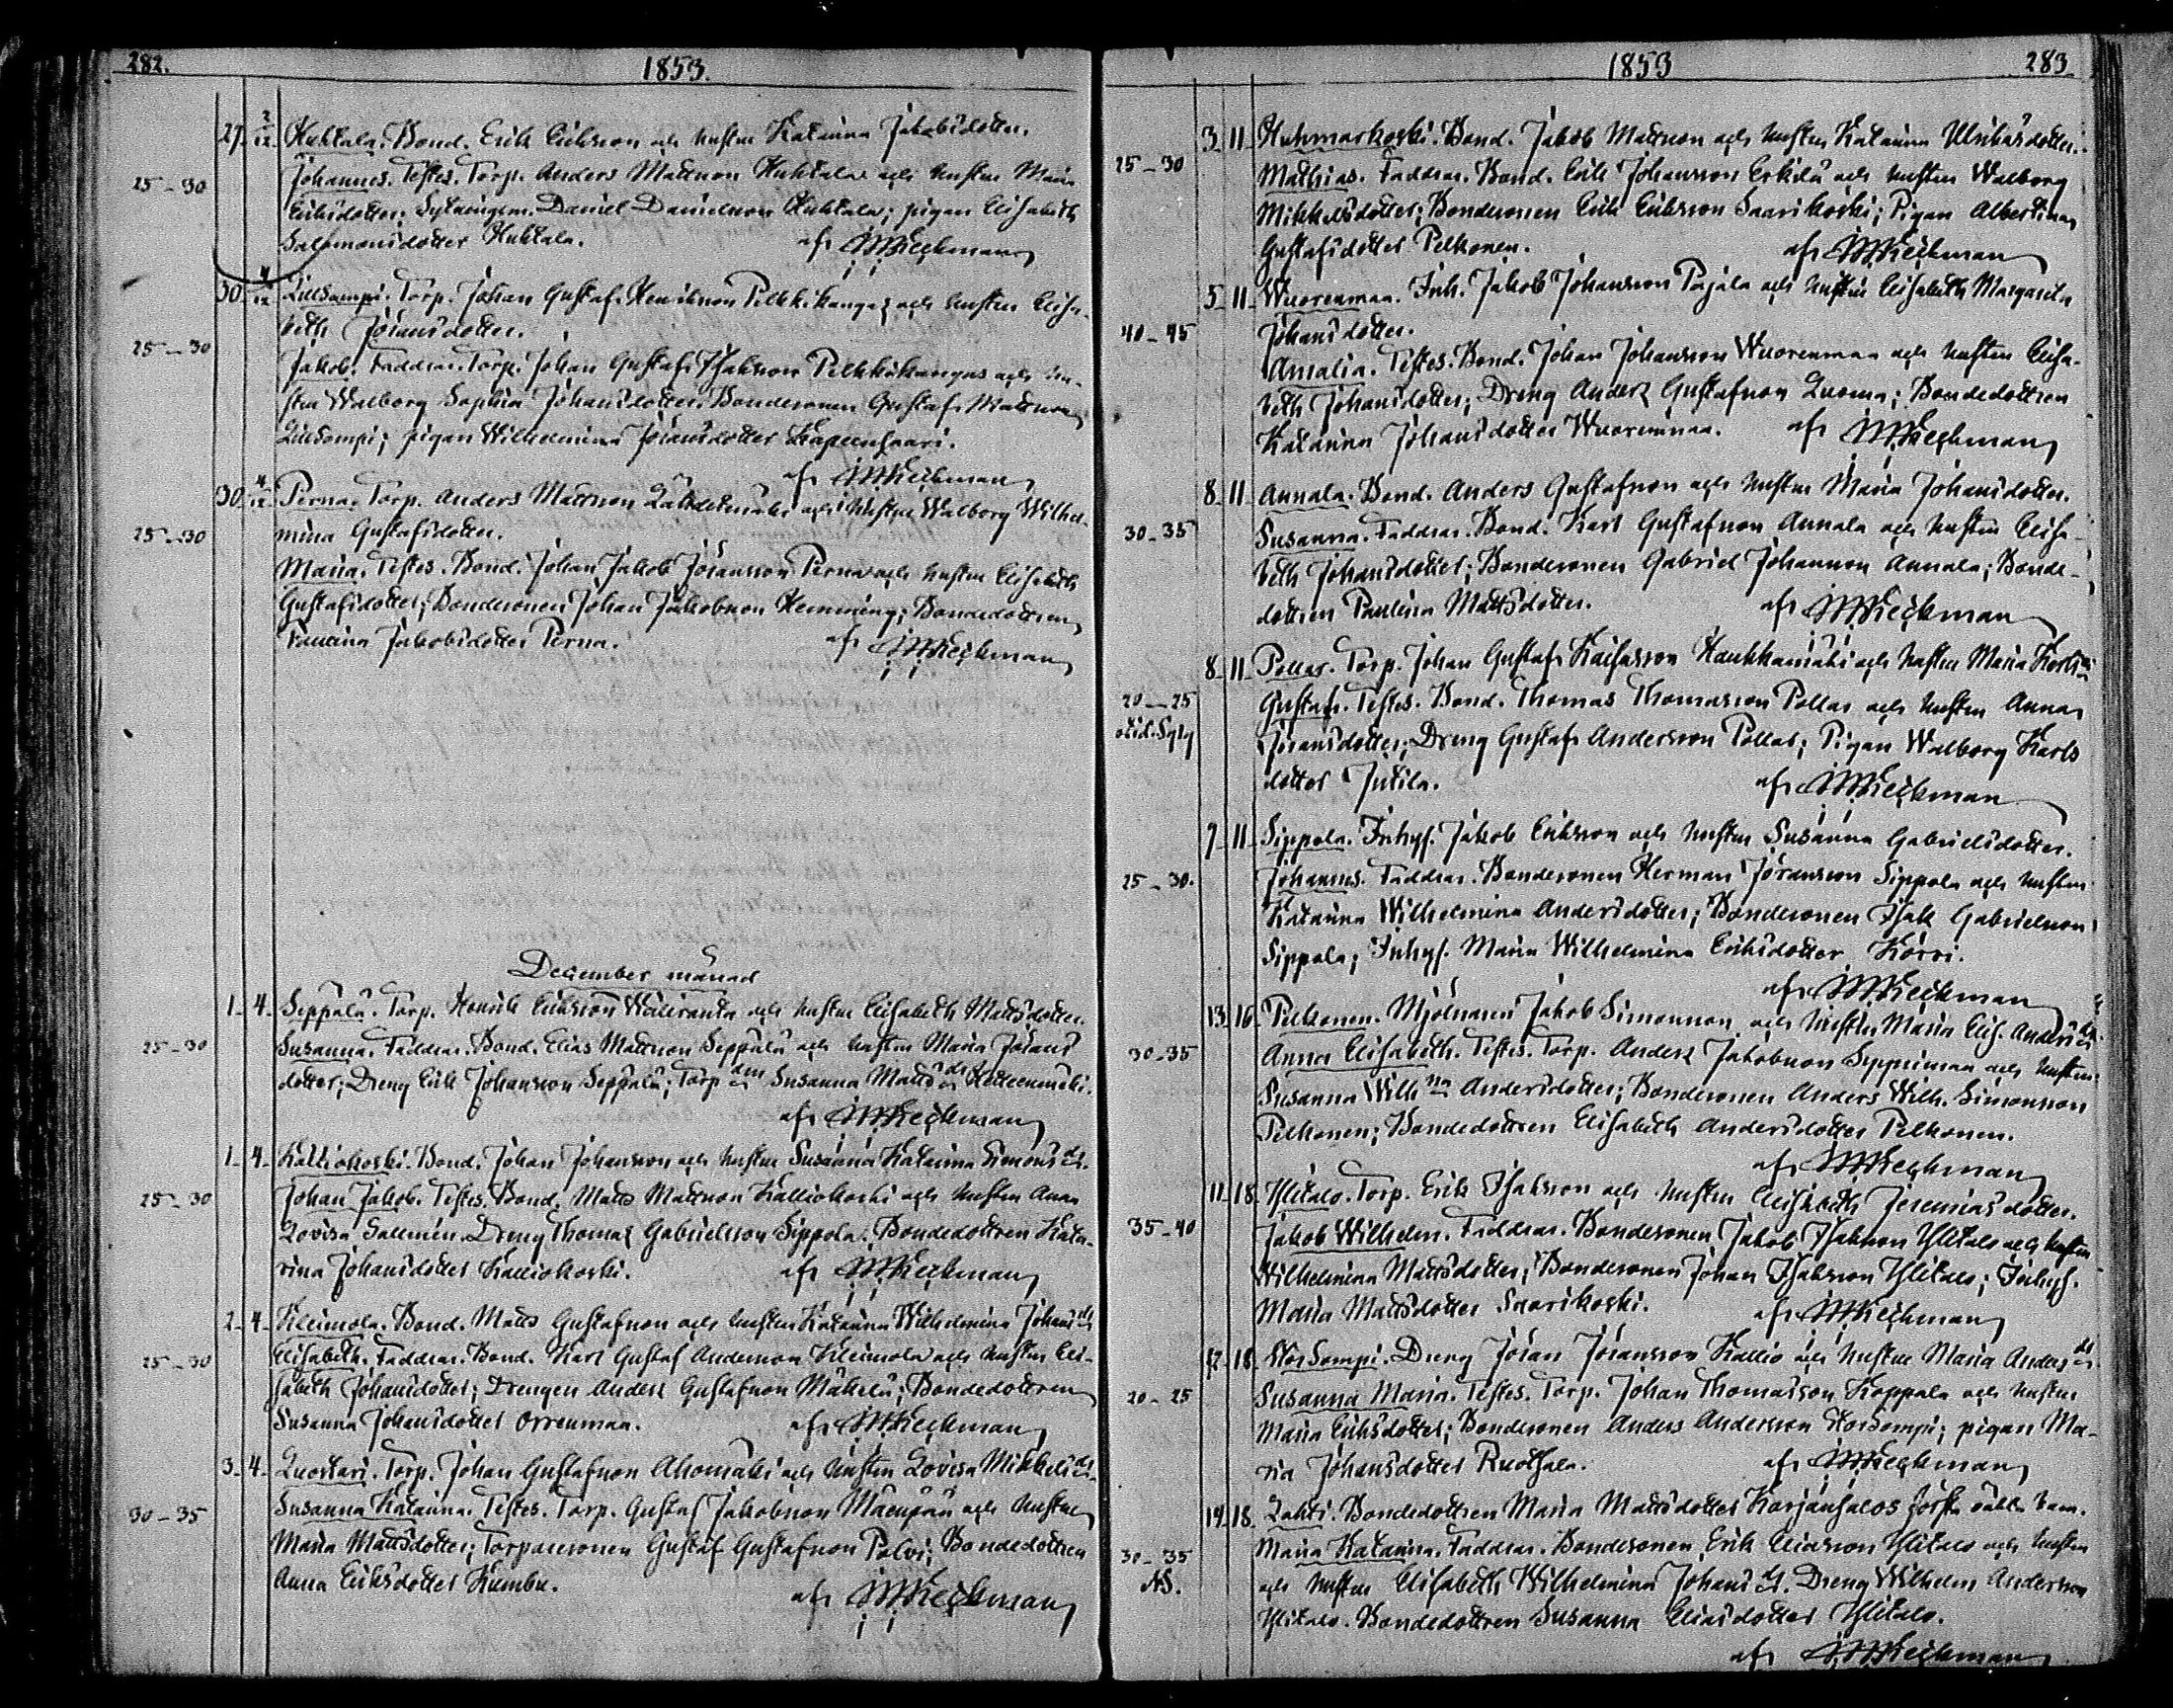 282. 1853.
27. 2/12. Huhtala. Bond. Erik Eriksson och hustru Katarina Jakobsdotter.
25–30 Johannes. Testes. Torp. Anders Mattsson Huhtala och hustru Maria
Eriksdotter; Daniel Danielsson Huhtala; pigan Elisabeth
Salomonsdotter Huhtala. af
30. 4/12 Lillsompi. Torp. Johan Gustaf Henriksson Pelkkikangas och hustru Elisa-
beth Jöransdotter.
25–30
Jakob. Faddrar. Torp. Johan Gustaf Isaksson Pelkkikangas och hu-
stru Walborg Sophia Johansdotter. Bondesonen Gustaf Mattsson
Lillsompi; pigan Wilhelmina Jöransdotter
af
30. 4/12. Perna. Torp. Anders Mattsson och hustru Walborg Wilhel-
25–30 mina Gustafsdotter.
Maria. Testes. Bond. Johan Jakob Jöransson Perna och hustru Elisabeth
Gustafsdotter; Bondesonen Johan Jakobsson Hemming; Bondedottren
Jakobsdotter Perna. af
December månad
1. 4. Seppälä. Torp. Henrik Eriksson och hustru Elisabeth Mattsdotter.
25–30 Susanna. Faddrar. Bond. Elias Mattsson Seppälä och hustru Maria Jörans
dotter; Dreng Erik Johansson Seppälä; Torp. Susanna Matts dr
af
1. 4. Kalliokoski. Bond. Johan Johansson och hustru Susanna Katarina Simons dr.
25–30 Johan Jakob. Testes. Bond. Matts Mattsson Kalliokoski och hustru Anna
Lovisa Dreng Thomas Gabrielsson Sippola. Bondedottren Kata-
rina Johansdotter Kalliokoski. af
2. 4. Kleimola. Bond. Matts Gustafsson och hustru Katarina Wilhelmina Johans dr
25–30 Elisabeth. Faddrar. Bond. Karl Gustaf Andersson Kleimola och hustru Eli-
sabeth Johansdotter; Drengen Anders Gustafsson Mäkelä; Bondedottren
Susanna Johansdotter Orrenmaa. af
3. 4. Luostari. Torp. Johan Gustafsson Ahomäki och hustru Lovisa Mikkels dr.
30–35 Susanna Katarina. Testes. Torp. Gustaf Jakobsson Mäenpää och hustru
Maria Mattsdotter; Torparesonen Gustaf Gustafsson Palvi; Bondedottren
Anna Eriksdotter af
1853 283
3. 11. Huhmarkoski. Bond. Jakob Mattsson och hustru Katarina Ulrikasdotter.
25–30 Mathias. Faddrar. Bond. Erik Johansson Erkilä och hustru Walborg
Mikkelsdotter; Bondesonen Erik Eriksson Saarikoski; Pigan Albertina
Gustafsdotter Pelkonen. af
5. 11. Wuorenmaa. Inh. Jakob Johansson Pajala och hustru Elisabeth Margareta
40–45 Johansdotter.
Amalia. Testes. Bond. Johan Johansson Wuorenmaa och hustru Elisa-
beth Johansdotter; Dreng Anders Gustafsson Luoma; Bondedottren
Katarina Johansdotter Wuorenmaa. af
8. 11. Annala. Bond. Anders Gustafsson och hustru Maria Johansdotter.
30–35 Susanna. Faddrar. Bond. Karl Gustafsson Annala och hustru Elisa-
beth Johansdotter; Bondesonen Gabriel Johansson Annala; Bonde-
dottren Paulina Mattsdotter. af
8. 11. Pollar. Torp. Johan Gustaf Haukkamäki och hustru Maria
20–25 Gustaf. Testes. Bond. Thomas Thomasson Pollar och hustru Anna
Jöransdotter; Dreng Gustaf Andersson Pollar; Pigan Walborg Karls
dotter Jutila. af
7. 11. Sippola. Inhys. Jakob Eriksson och hustru Susanna Gabrielsdotter.
25–30. Johannes. Faddrar. Bondesonen Herman Jöransson Sippola och hustru
Katarina Wilhelmina Andersdotter; Bondesonen Isak Gabrielsson
Sippola; Inhys. Maria Wilhelmina Eriksdotter Körri.
af
13. 16. Pelkonen. Mjölnaren Jakob Simonsson och hustru Maria Elis. Anders dr.
30–35 Anna Elisabeth. Testes. Torp. Anders Jakobsson och hustru
Susanna Wilh na Andersdotter; Bondesonen Anders Wilh. Simonsson
Pelkonen; Bondedottren Elisabeth Andersdotter Pelkonen.
af
11. 18. Ylitalo. Torp. Erik Isaksson och hustru Elisabeth Jeremiasdotter.
35–40 Jakob Wilhelm. Faddrar. Bondesonen Jakob Isaksson Ylitalo och hustru
Wilhelmina Mattsdotter; Bondesonen Johan Isaksson Ylitalo; Inhys.
Maria Mattsdotter Saarikoski. af
12. 18. Storsompi. Dreng Jöran Jöransson Kallio och hustru Maria Anders dr.
20–25 Susanna Maria. Testes. Torp. Johan Thomasson Koppala och hustru
Maria Eriksdotter; Bondesonen Anders Andersson Storsompi; pigan Ma-
ria Johansdotter Ruotsala. af
14. 18. Lahti. Bondedottren Maria Mattsdotter Karjansalos första oäkta barn.
30–35 Maria Katarina. Faddrar. Bondesonen Erik Eliasson Ylitalo och hustru
NS. och hustru Elisabeth Wilhelmina Johans dr. Dreng Wilhelm Andersson
Ylitalo. Bondedottren Susanna Eliasdotter Ylitalo.
af